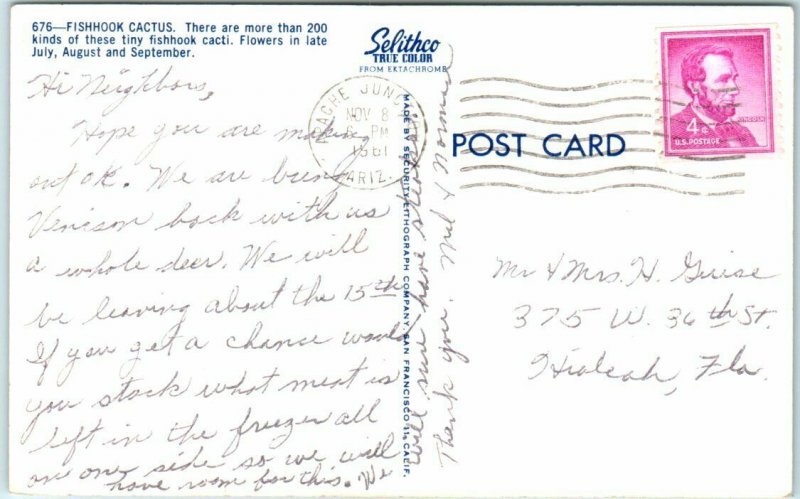 676—FISHHOOK CACTUS. There are more than 200
kinds of these tiny fishhook cacti. Flowers in late
July, August and September.
Selithco
TRUE COLOR
FROM EKTACHROME
Hi Neighbors,
Hope you are making
out ok. We are bring
Venison back with us
a whole deer. We will
be leaving about the 15th
If you get a chance would
you stack what meat is
left in the freezer all
on one side so we will
have room for this. We
will sure have steaks
Thank you. Mel & Norman
MADE BY SECURITY LITHOGRAPH COMPANY, SAN FRANCISCO 11, CALIF.
APACHE JUNC
NOV 8
PM
1961
ARIZ.
POST CARD
4¢
LINCOLN
U.S. POSTAGE
Mr & Mrs. H. Guise
375 W. 36th St.
Hialeah, Fla.